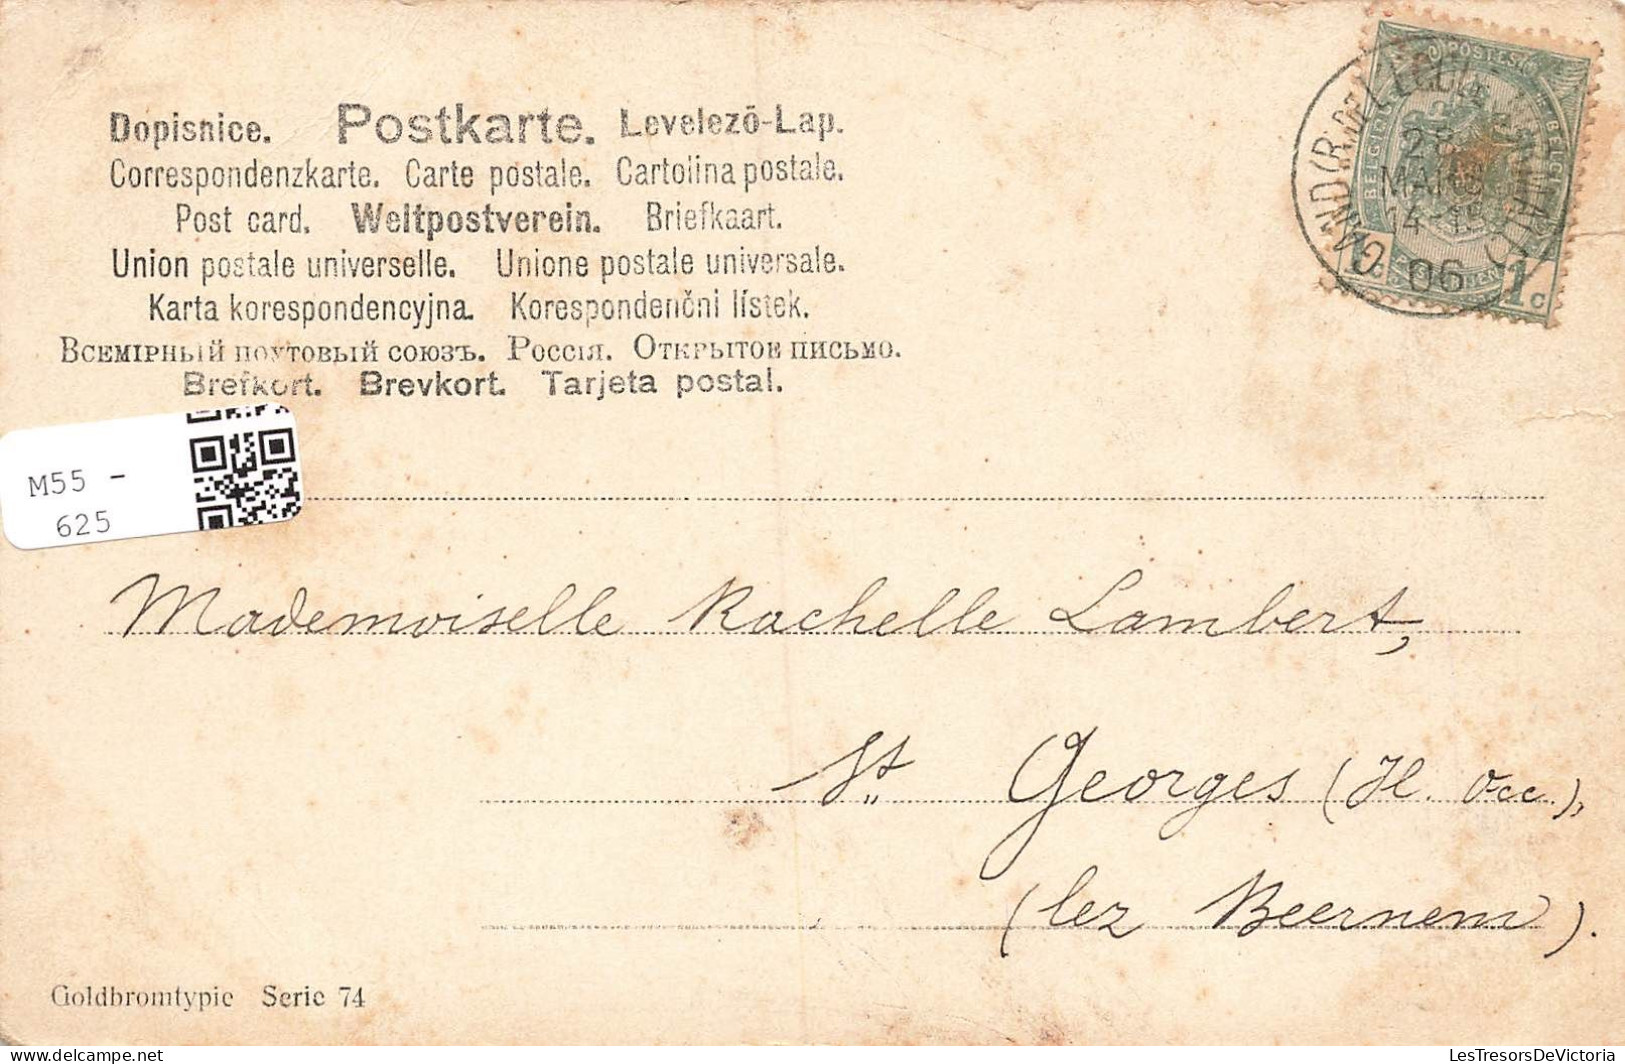 Dopisnice. Postkarte. Levelező-Lap.
Correspondenzkarte. Carte postale. Cartolina postale.
Post card. Weltpostverein. Briefkaart.
Union postale universelle. Unione postale universale.
Karta korespondencyjna. Korespondenční lístek.
Всемірный почтовый союзъ. Россія. Открытое письмо.
Brefkort. Brevkort. Tarjeta postal.
POSTES
BELGIQUE
BELGIE
1c
GAND (R.DE L'
28
MARS
14-15
06
M55 -
625
Mademoiselle Rachelle Lambert,
St. Georges (Fl. Occ.),
(lez Beernem).
Goldbromtypie Serie 74
LesTresorsDeVictoria
delcampe.net